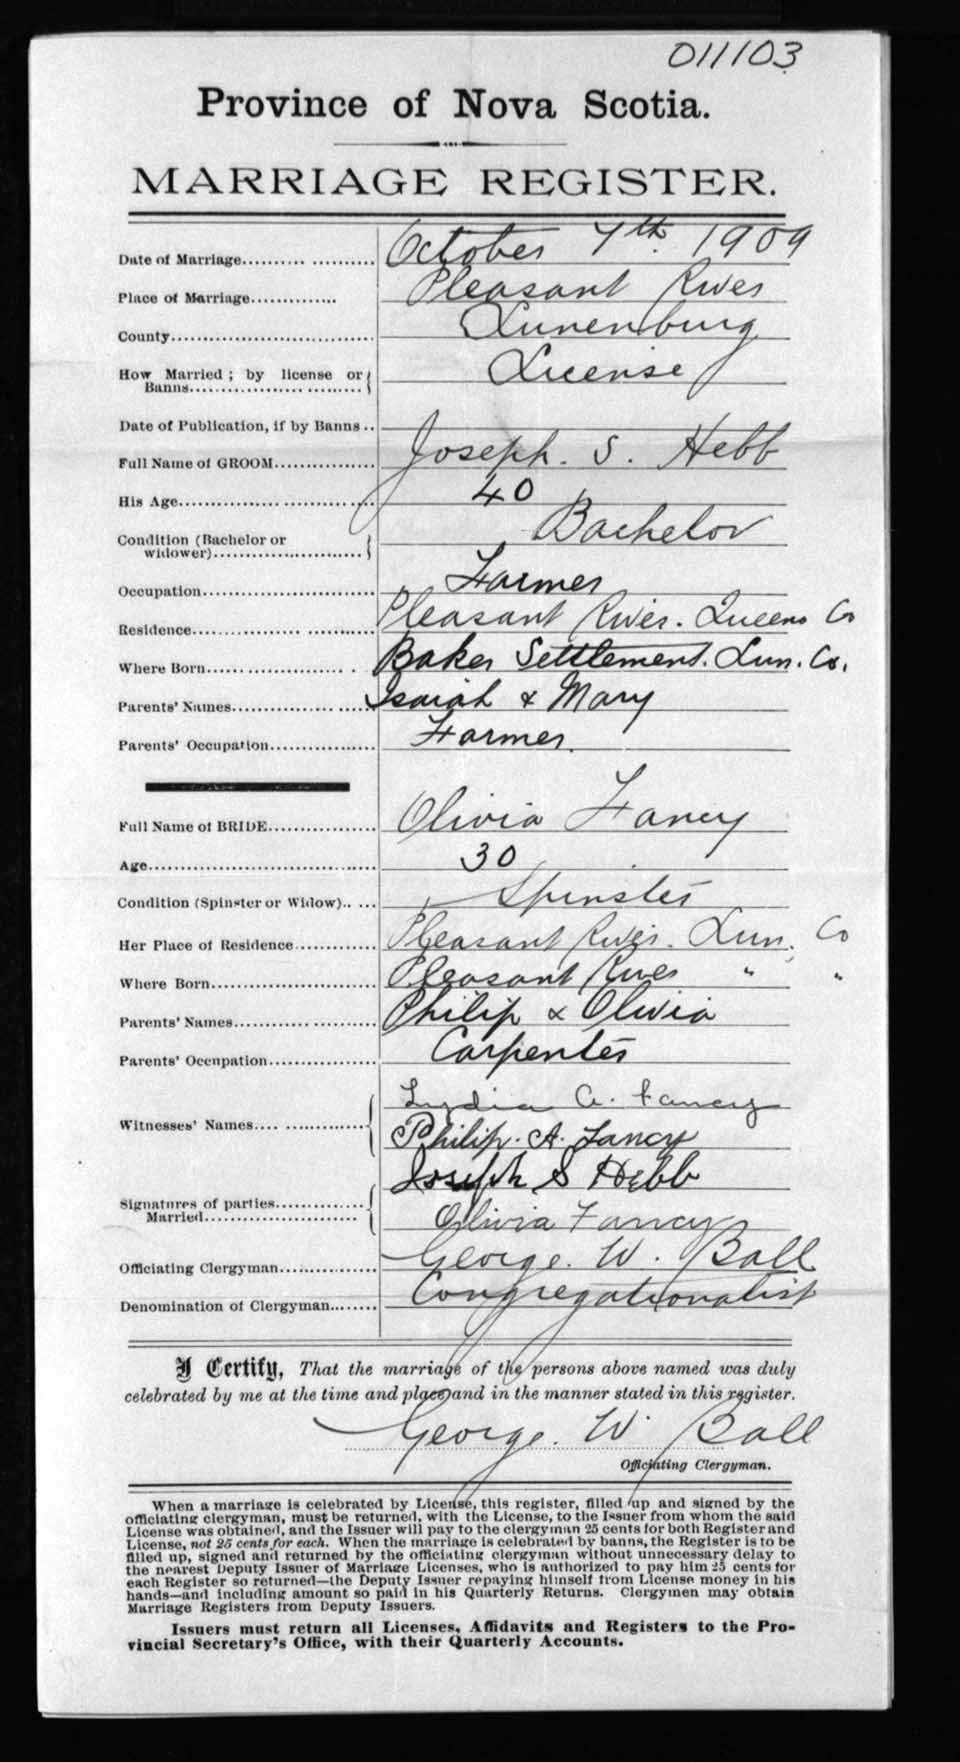 011103
Province of Nova Scotia.
MARRIAGE REGISTER.
Date of Marriage..................... October 7th. 1909
Place of Marriage............. Pleasant River
County................................. Lunenburg
How Married ; by license or License
Banns..............................
Date of Publication, if by Banns ..
Full Name of GROOM................ Joseph. S. Hebb
His Age................................ 40
Condition (Bachelor or Bachelor
widower)........................
Occupation............................ Farmer
Residence............................. Pleasant River. Queens Co
Where Born........................ Baker Settlement. Lun. Co.
Parents' Names....................... Isaiah & Mary
Parents' Occupation................. Farmer.
Full Name of BRIDE................. Olivia Fancy
Age..................................... 30
Condition (Spinster or Widow).. ... Spinster
Her Place of Residence............. Pleasant River. Lun. Co
Where Born........................... Pleasant River " "
Parents' Names....................... Philip & Olivia
Parents' Occupation................. Carpenter
Lydia A. Fancy
Witnesses' Names.... .............. Philip. A. Fancy
Joseph S Hebb
Signatures of parties..............
Married.......................... Olivia Fancy
Officiating Clergyman............... George. W. Ball
Denomination of Clergyman....... Congregationalist
I Certify, That the marriage of the persons above named was duly
celebrated by me at the time and place and in the manner stated in this register.
George. W. Ball
Officiating Clergyman.
When a marriage is celebrated by License, this register, filled up and signed by the
officiating clergyman, must be returned, with the License, to the Issuer from whom the said
License was obtained, and the Issuer will pay to the clergyman 25 cents for both Register and
License, not 25 cents for each. When the marriage is celebrated by banns, the Register is to be
filled up, signed and returned by the officiating clergyman without unnecessary delay to
the nearest Deputy Issuer of Marriage Licenses, who is authorized to pay him 25 cents for
each Register so returned—the Deputy Issuer repaying himself from License money in his
hands—and including amount so paid in his Quarterly Returns. Clergymen may obtain
Marriage Registers from Deputy Issuers.
Issuers must return all Licenses, Affidavits and Registers to the Pro-
vincial Secretary's Office, with their Quarterly Accounts.